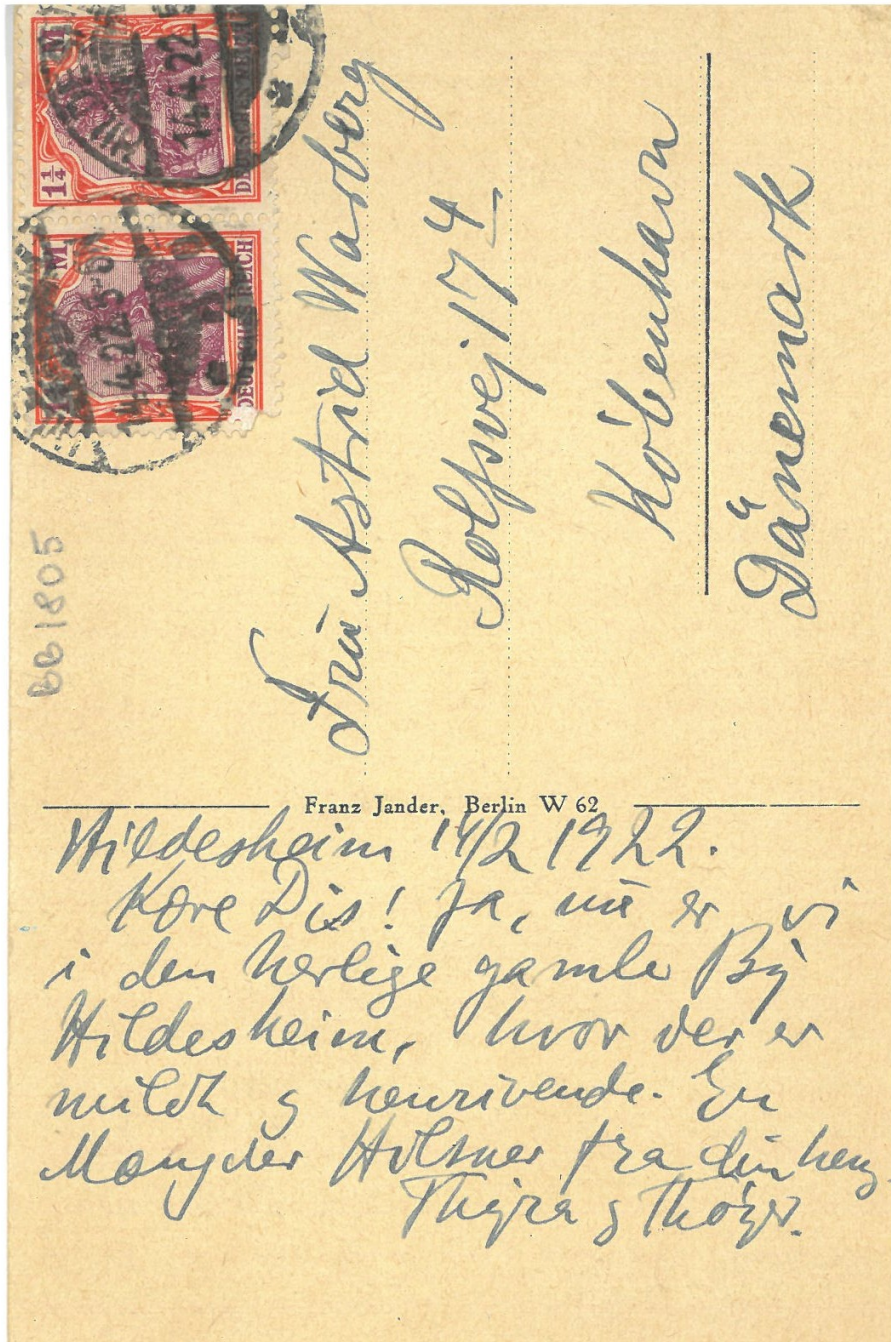 1¼ M
DEUTSCHES REICH
14.4.22
M
DEUTSCHES REICH
14.4.22.5-6
BB1805
Fru Astrid Warberg
Rolfsvej 17 4
Köbenhavn
Dänemark
Franz Jander, Berlin W 62
Hildesheim 14/2 1922.
Kære Dis! Ja, nu er vi
i den herlige gamle By
Hildesheim, hvor der er
mildt og henrivende. En
Mængder Hilsner fra din heng.
Thyra og Thøger.